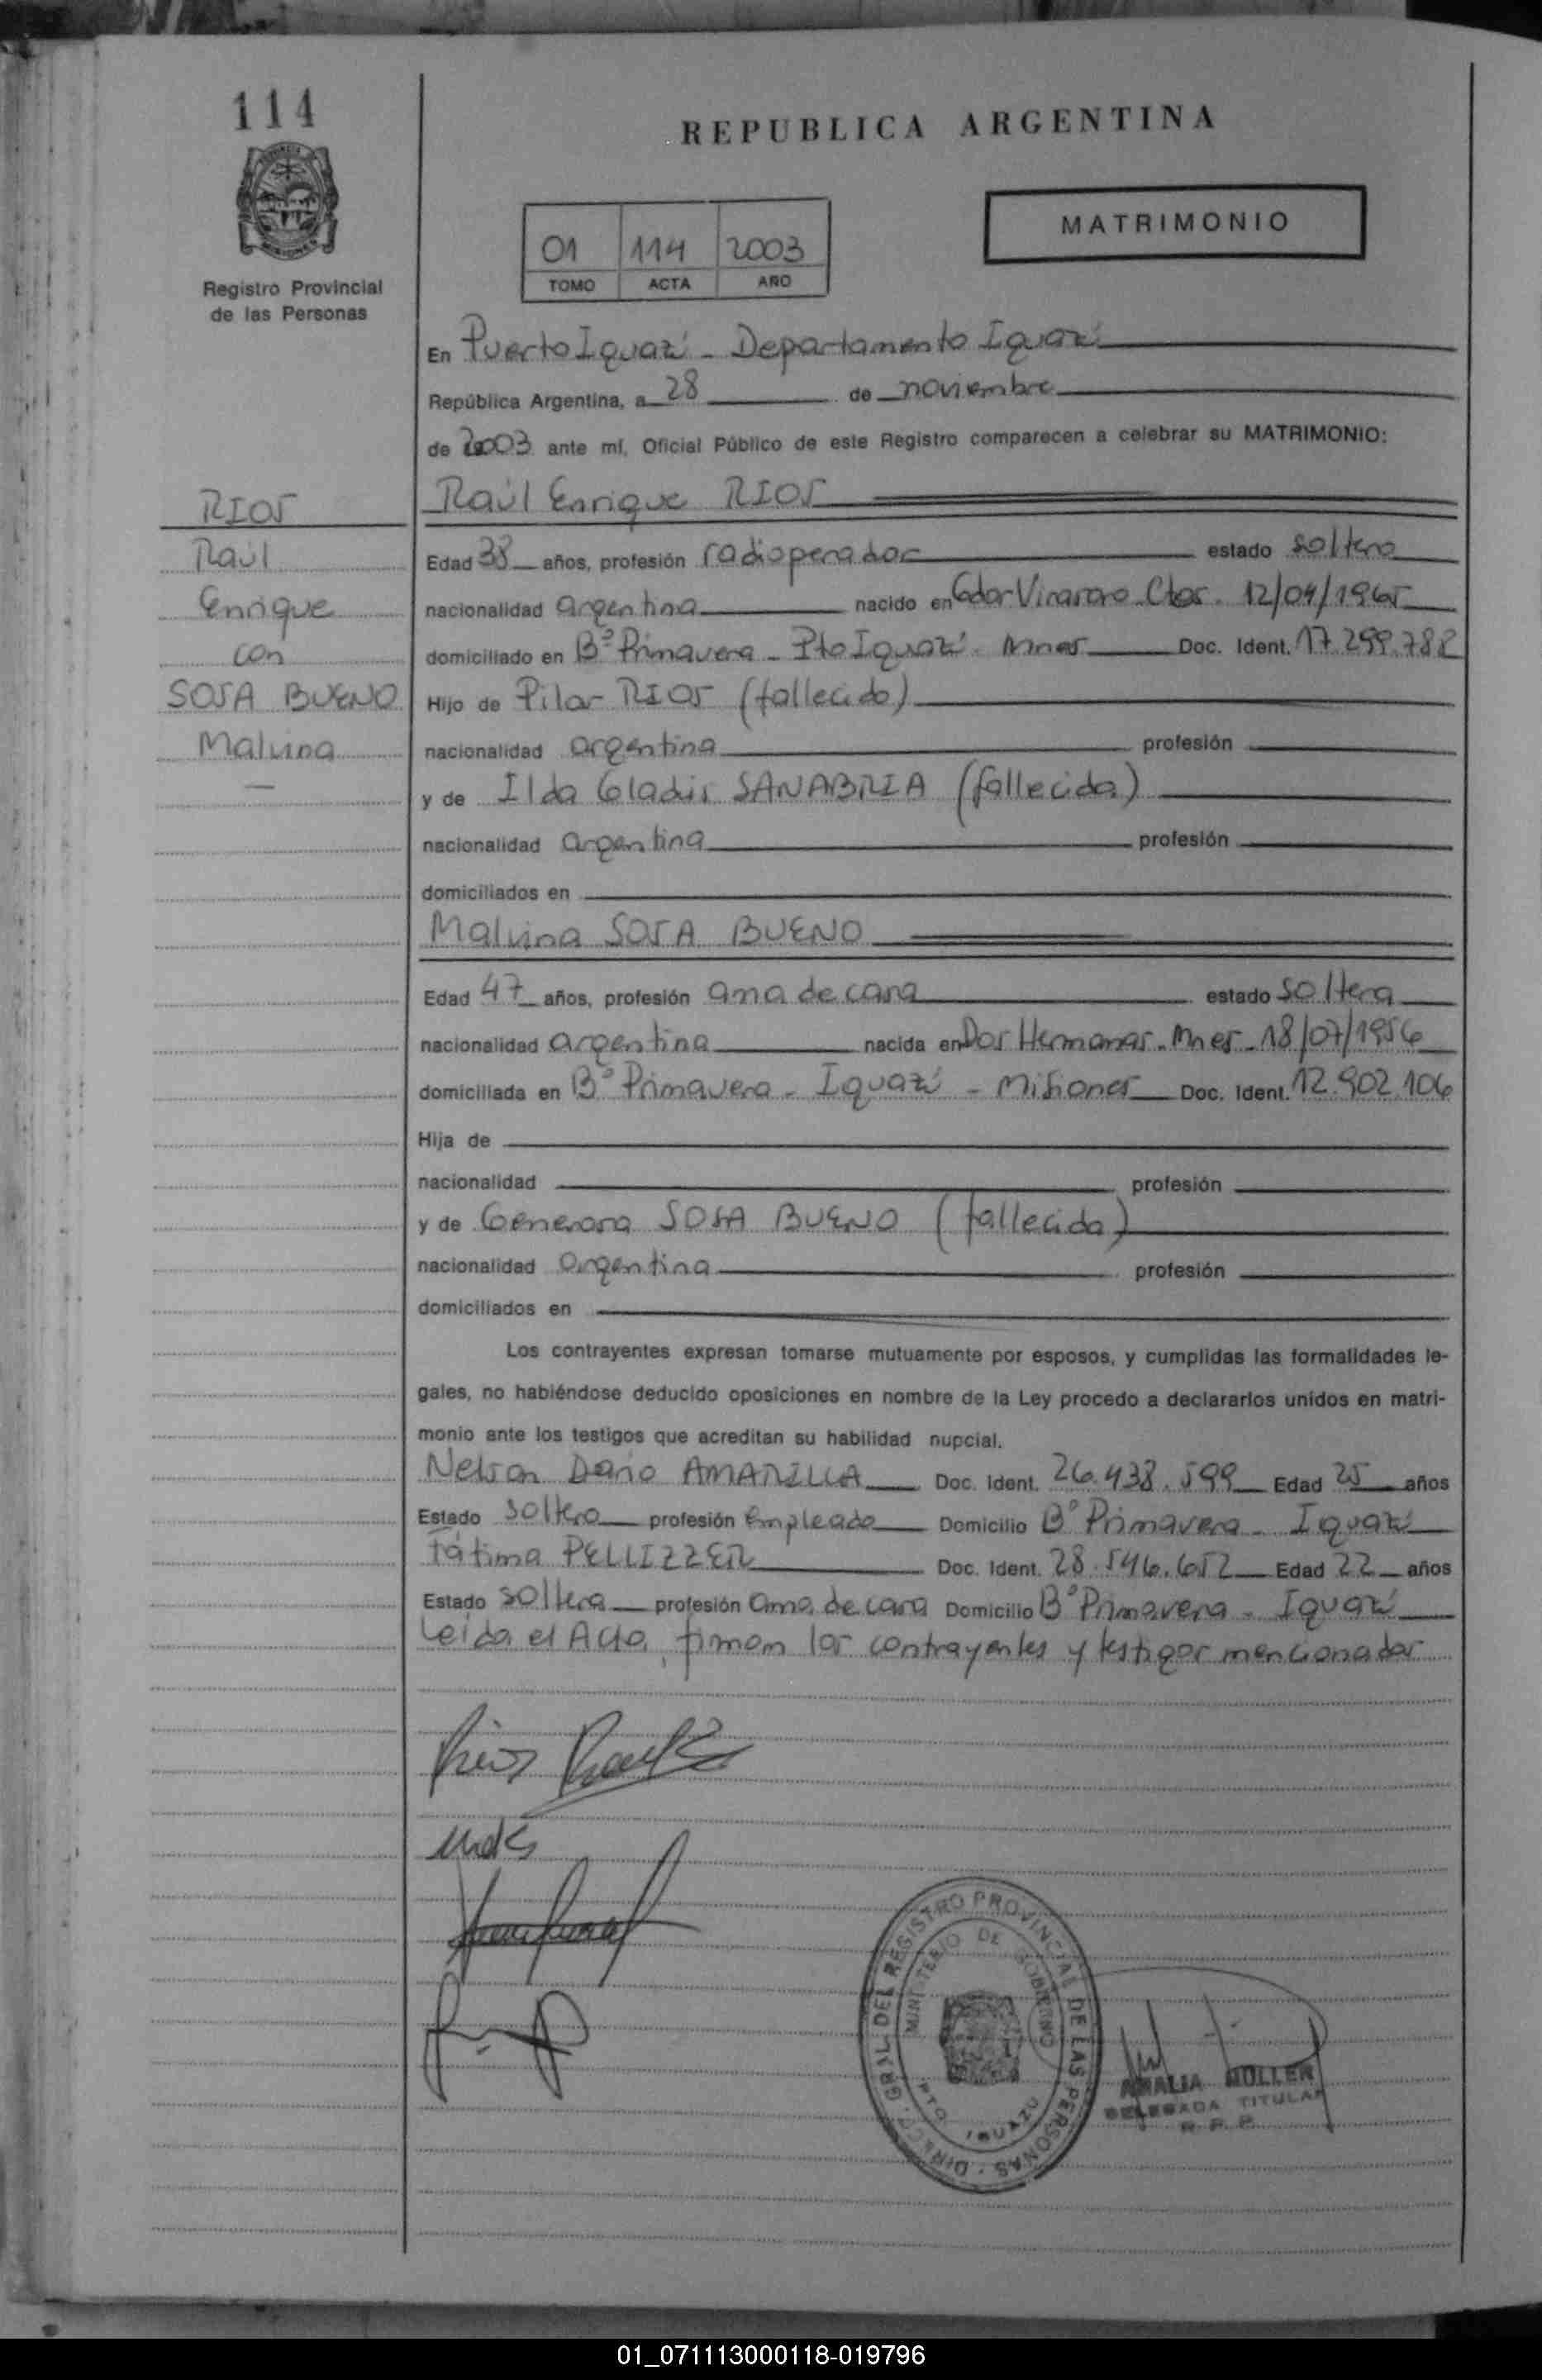 114
REPUBLICA ARGENTINA
MATRIMONIO
01 114 2003
TOMO ACTA AÑO
Registro Provincial
de las Personas
En Puerto Iguazú - Departamento Iguazú
República Argentina, a 28 de noviembre
de 2003 ante mí, Oficial Público de este Registro comparecen a celebrar su MATRIMONIO:
RIOS
Raúl
Enrique
con
SOSA BUENO
Malvina
Raúl Enrique RIOS
Edad 38 años, profesión radioperador estado soltero
nacionalidad argentina nacido en Gdor Virasoro Ctes. 12/04/1965
domiciliado en Bº Primavera - Pto Iguazú - Mnes Doc. Ident. 17.299.788
Hijo de Pilar RIOS (fallecido)
nacionalidad argentina profesión
y de Ilda Gladis SANABRIA (fallecida)
nacionalidad argentina profesión
domiciliados en
Malvina SOSA BUENO
Edad 47 años, profesión ama de casa estado soltera
nacionalidad argentina nacida en Dos Hermanas. Mnes - 18/07/1956
domiciliada en Bº Primavera - Iguazú - Misiones Doc. Ident. 12.902.106
Hija de
nacionalidad profesión
y de Generosa SOSA BUENO (fallecida)
nacionalidad argentina profesión
domiciliados en
Los contrayentes expresan tomarse mutuamente por esposos, y cumplidas las formalidades le-
gales, no habiéndose deducido oposiciones en nombre de la Ley procedo a declararlos unidos en matri-
monio ante los testigos que acreditan su habilidad nupcial.
Nelson Dario AMARILLA Doc. Ident. 26.438.599 Edad 25 años
Estado soltero profesión empleado Domicilio Bº Primavera - Iguazú
Fátima PELLIZZER Doc. Ident. 28.546.652 Edad 22 años
Estado soltera profesión ama de casa Domicilio Bº Primavera - Iguazú
Leída el Acta, firman los contrayentes y testigos mencionados
Rios Raul E
DIRECC. GRAL. DEL REGISTRO PROVINCIAL DE LAS PERSONAS
MINISTERIO DE GOBIERNO
PTO IGUAZU
AMALIA MULLER
DELEGADA TITULAR
R. P. P.
01_071113000118-019796